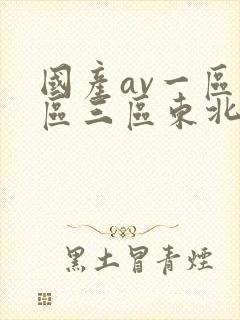 國產av一區
區三區東北
黑土冒青煙